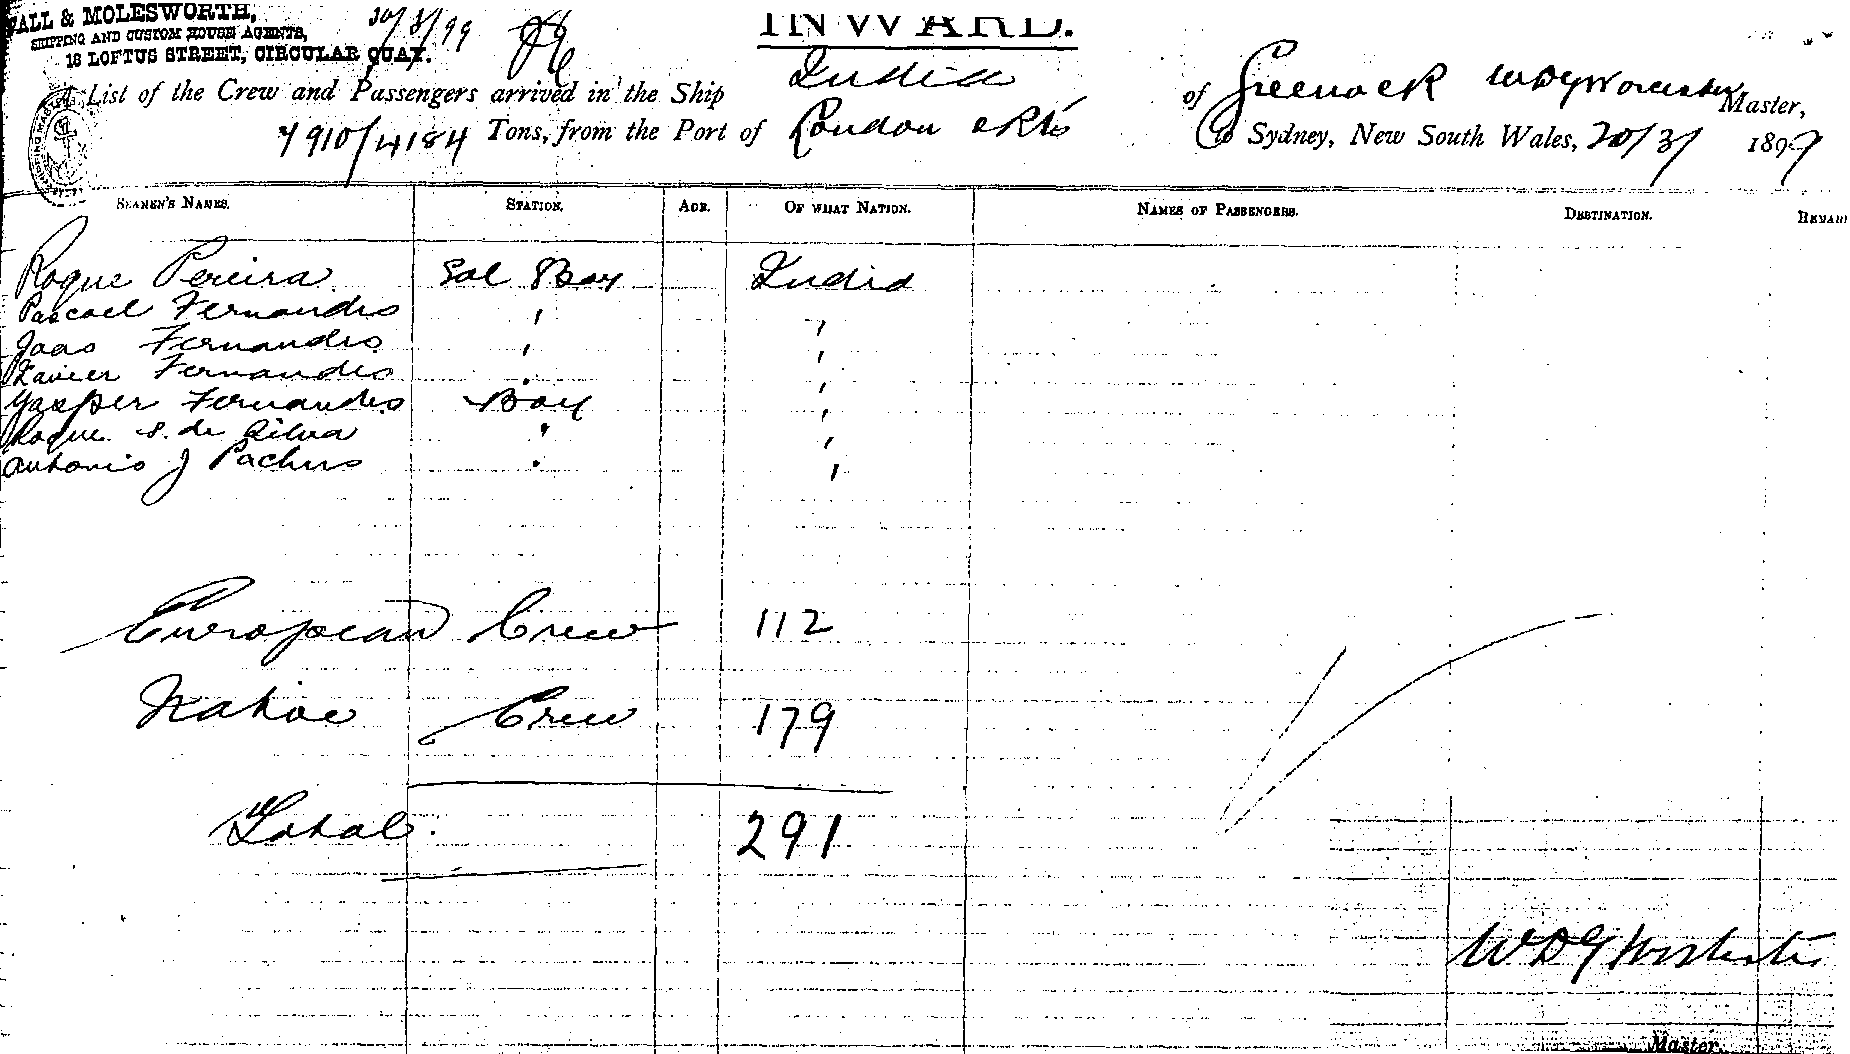 ALL & MOLESWORTH,
SHIPPING AND CUSTOM HOUSE AGENTS,
18 LOFTUS STREET, CIRCULAR QUAY.
20/3/99
INWARD.
A List of the Crew and Passengers arrived in the Ship India of Greenock WDG Worcester Master,
7910/4184 Tons, from the Port of London &Rts to Sydney, New South Wales, 20/3/ 1899
SEAMEN'S NAMES. STATION. AGE. OF WHAT NATION. NAMES OF PASSENGERS. DESTINATION. REMAR
Roque Pereira Sal Boy India
Pascoel Fernandis " "
Joao Fernandis " "
Xavier Fernandis " "
Gasper Fernandis Boy "
Roque S. de Silva " "
Antonio J Pacheco " "
European Crew 112
Native Crew 179
Total. 291
WDG Worcester
Master.